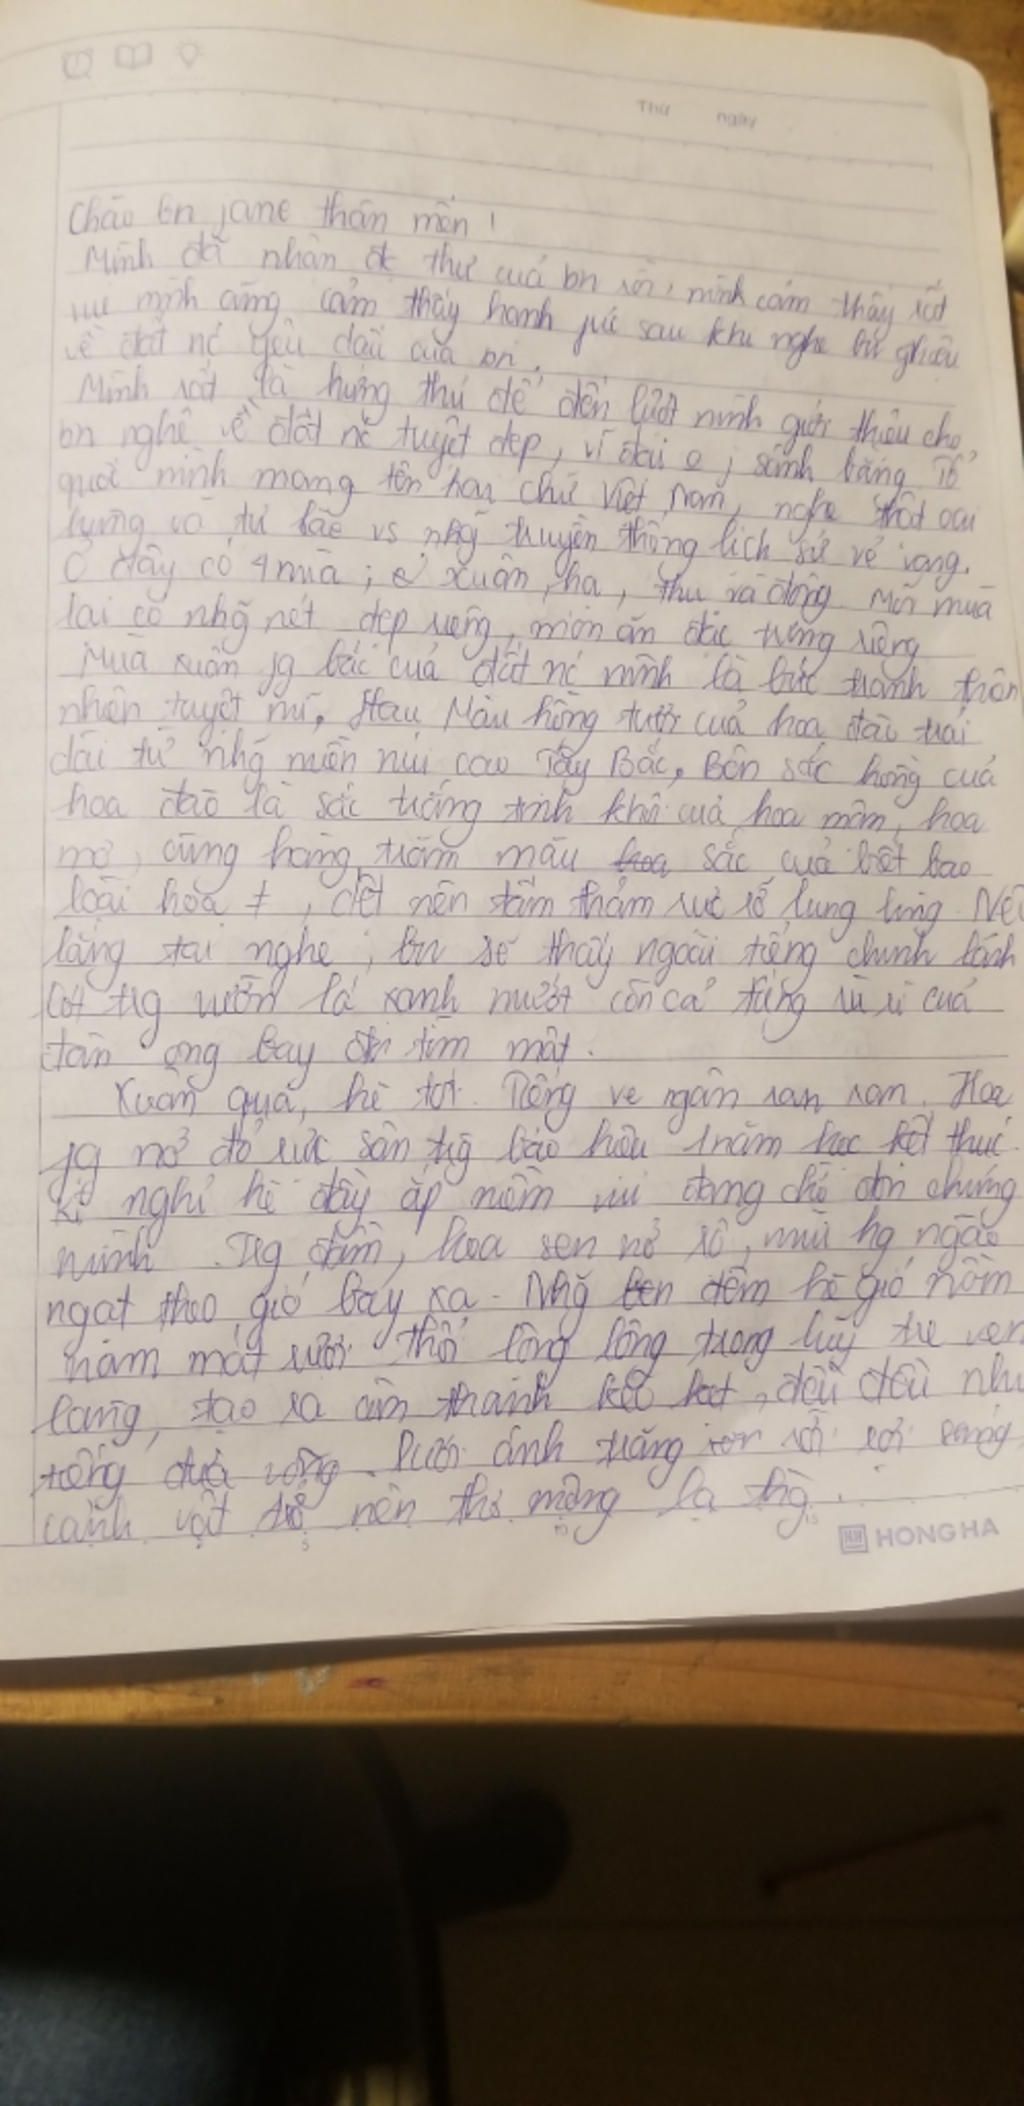 Thứ ngày
Chào bn jane thân mến !
Mình đã nhận đc thư của bn rồi, mình cảm thấy rất
vui mình cũng cảm thấy hạnh phúc sau khi nghe bn
về đất nc yêu dấu của bn.
Mình rất là hứng thú để đến lượt mình giới thiệu cho
bn nghe về đất nc tuyệt đẹp, vĩ đại sánh bằng Tổ
quốc mình mang tên hai chữ Việt Nam, nghe thật oai
hùng và tự hào vs nhg truyền thống lịch sử vẻ vang.
Ở đây có 4 mùa ; xuân, hạ, thu và đông Mỗi mùa
lại có nhg nét đẹp riêng, món ăn đặc trưng riêng
Mùa xuân bắc của đất nc mình là bức tranh thiên
nhiên tuyệt mĩ. Màu hồng tươi của hoa đào trải
dài từ nhg miền núi cao Tây Bắc, Bên sắc hồng của
hoa đào là sắc trắng tinh khôi của hoa mận, hoa
mơ, cùng hàng trăm màu sắc của biết bao
loài hoa ≠, dệt nên tấm thảm rực rỡ lung linh. Nếu
lắng tai nghe, bn sẽ thấy ngoài tiếng chim lách
trg vườn lá xanh mướt còn cả tiếng rù rì của
đàn ong bay đi tìm mật.
Xuân qua, hè tới. Tiếng ve ngân ran ran. Hoa
pg nở đỏ rực sân trg báo hiệu 1 năm học kết thúc.
Kì nghỉ hè đầy ắp niềm vui đang chờ đón chúng
mình. Trg đầm, hoa sen nở rộ, mùi hg ngào
ngạt theo gió bay xa. Nhg đêm hè gió nồm
nam mát rượi thổi lồng lộng trong lũy tre ven
làng, tạo ra âm thanh kẽo kẹt, đều đều như
tiếng đưa võng. Dưới ánh trăng vời vợi sáng,
cảnh vật trở nên thơ mộng lạ thg.
HONG HA